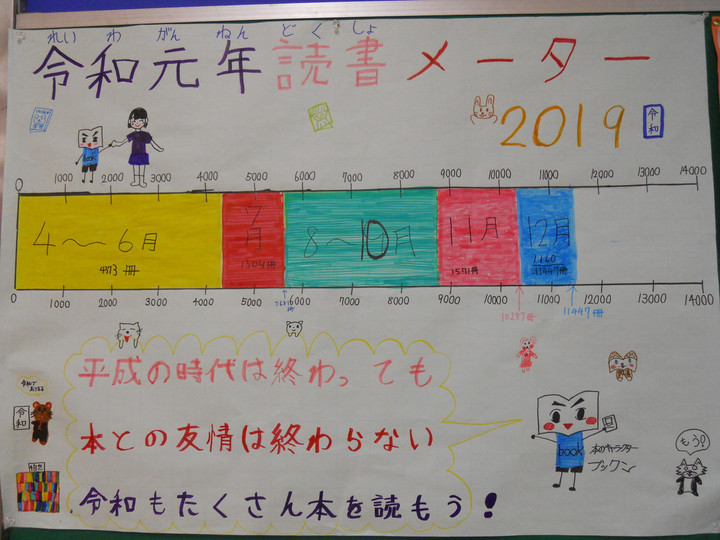 れいわがんねんどくしょ
令和元年読書メーター
2019
令和
book
0 1000 2000 3000 4000 5000 6000 7000 8000 9000 10000 11000 12000 13000 14000
4～6月
7月
8～10月
11月
12月
1304冊
1571冊
1160
11447冊
0 1000 2000 3000 4000 5000 6000 7000 8000 9000 10000 11000 12000 13000 14000
10287冊
11447冊
平成の時代は終わっても
本との友情は終わらない
令和もたくさん本を読もう!
令和
book
本のキャラクター
ブックン
もう!